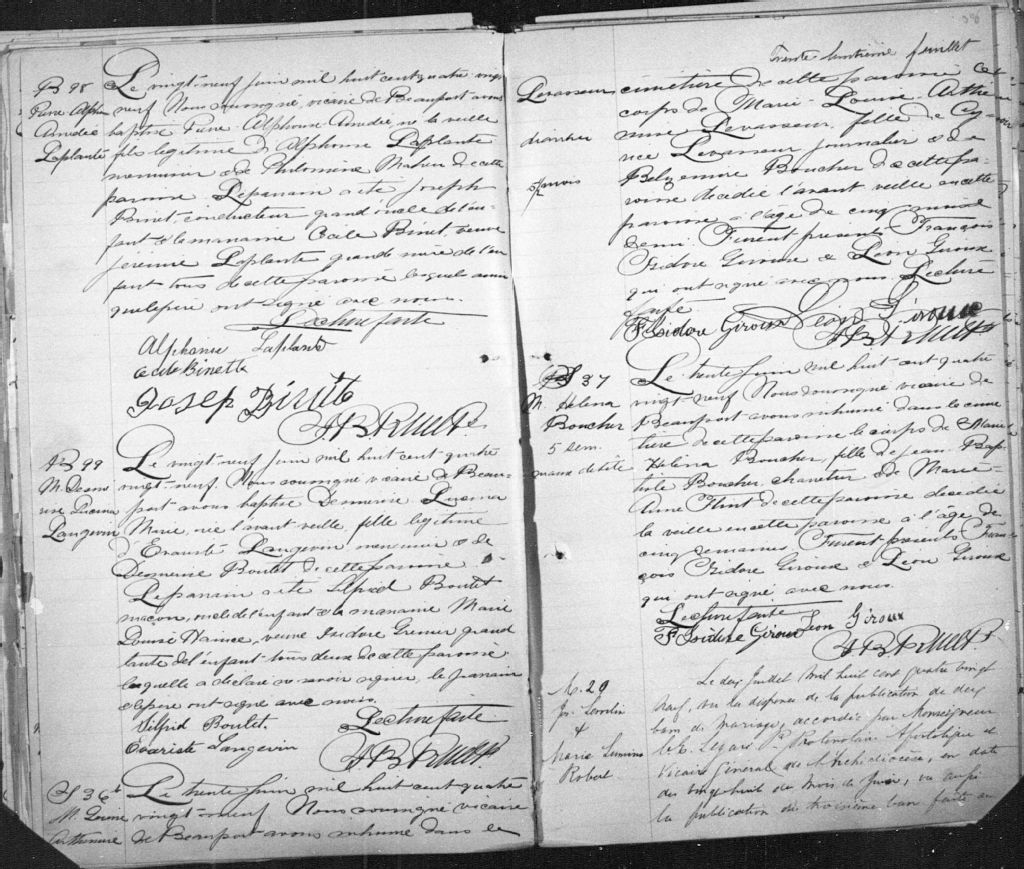 B 98
Pierre Alphonse
Amédée
Laplante
Le vingt-neuf juin mil huit cent quatre vingt
neuf Nous soussigné, vicaire de Beauport avons
baptisé Alphonse Amédée, né la veille
fils légitime d'Alphonse Laplante
menuisier & de Philomène de cette
paroisse. Le parrain a été Joseph
Binet, conducteur grand oncle de l'en-
fant & la marraine Cécile Binet, veuve
Jérémie Laplante grande mère de l'en
fant tous de cette paroisse lesquels ainsi
que le père ont signé avec nous.
Lecture faite
Alphonse Laplante
Cecile Binette
Josep
B 99
Langevin
Le vingt-neuf juin mil huit cent quatre
vingt-neuf. Nous soussigné vicaire de Beau-
port avons baptisé
Marie, née l'avant veille, fille légitime
d'Evariste Langevin menuisier & de
Boulet de cette paroisse.
Le parrain a été Wilfrid Boulet
maçon, oncle de l'enfant & la marraine Marie
Louise veuve Isidore Grenier grand
tante de l'enfant tous deux de cette paroisse
laquelle a déclaré ne savoir signer, le parrain
& le père ont signé avec nous.
Lecture faite.
Wilfrid Boulet.
Evariste Langevin
S 36
M. Louise
Le trente juin mil huit cent quatre
vingt-neuf Nous soussigné vicaire
de Beauport avons inhumé dans le
Trente huitième feuillet
Levasseur
cimetière de cette paroisse le
corps de Marie-Louise-
Levasseur, fille de
Levasseur journalier & de
Boucher de cette pa-
roisse décédée l'avant veille en cette
paroisse à l'âge de cinq mois &
demi. Furent présents François
Isidore Giroux & Léon Giroux
qui ont signé avec nous. Lecture
faite
F Isidore Giroux Léon Giroux
S 37
M. Helena
Boucher
5 sem.
Le trente juin mil huit cent quatre
vingt-neuf Nous soussigné vicaire de
Beauport avons inhumé dans le cime
tière de cette paroisse le corps de Marie
Helena Boucher, fille de Jean Bap-
tiste Boucher, charretier & de Marie-
Anne Flint de cette paroisse décédée
la veille en cette paroisse à l'âge de
cinq semaines. Furent présents Fran-
çois Isidore Giroux & Léon Giroux
qui ont signé avec nous.
Lecture faite
F Isidore Giroux Léon Giroux
M. 29
&
Marie
Robert
Le deux Juillet mil huit cent quatre vingt
neuf, vu la dispense de la publication de deux
bans de mariage, accordée par Monseigneur
Legaré Protonotaire Apostolique &
Vicaire Général de l'Archidiocèse, en date
du vingt huit du mois de Juin, vu aussi
la publication du troisième ban faite au